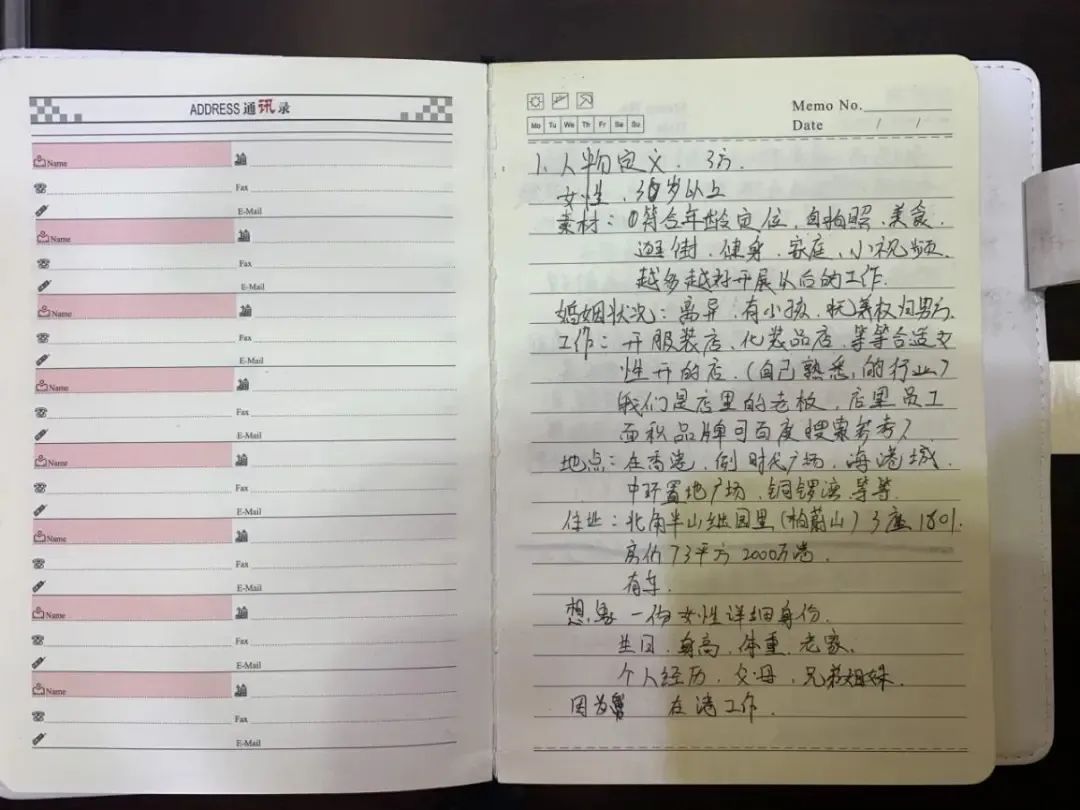 ADDRESS 通讯录
Name
Fax
E-Mail
Name
Fax
E-Mail
Name
Fax
E-Mail
Name
Fax
E-Mail
Name
Fax
E-Mail
Name
Fax
E-Mail
Name
Fax
E-Mail
Name
Fax
E-Mail
Memo No.
Mo Tu We Th Fr Sa Su
Date / /
1、人物定义、3方.
女性、30岁以上
素材：①符合年龄定位，自拍照、美食、
逛街、健身、家庭、小视频.
越多越好开展以后的工作.
婚姻状况：离异、有小孩，抚养权归男方.
工作：开服装店、化装品店、等等合适女
性开的店.（自己熟悉的行业）
我们是店里的老板，店里员工
面积品牌可百度搜索参考）
地点：在香港，例 时代广场、海港城、
中环置地广场、铜锣湾 等等
住址：北角半山继园里（柏蔚山）3座1801.
房价73平方 2000万港.
有车.
想象 一份女性详细身份.
生日、身高、体重、老家、
个人经历、父母、兄弟姐妹.
因为 在港工作.